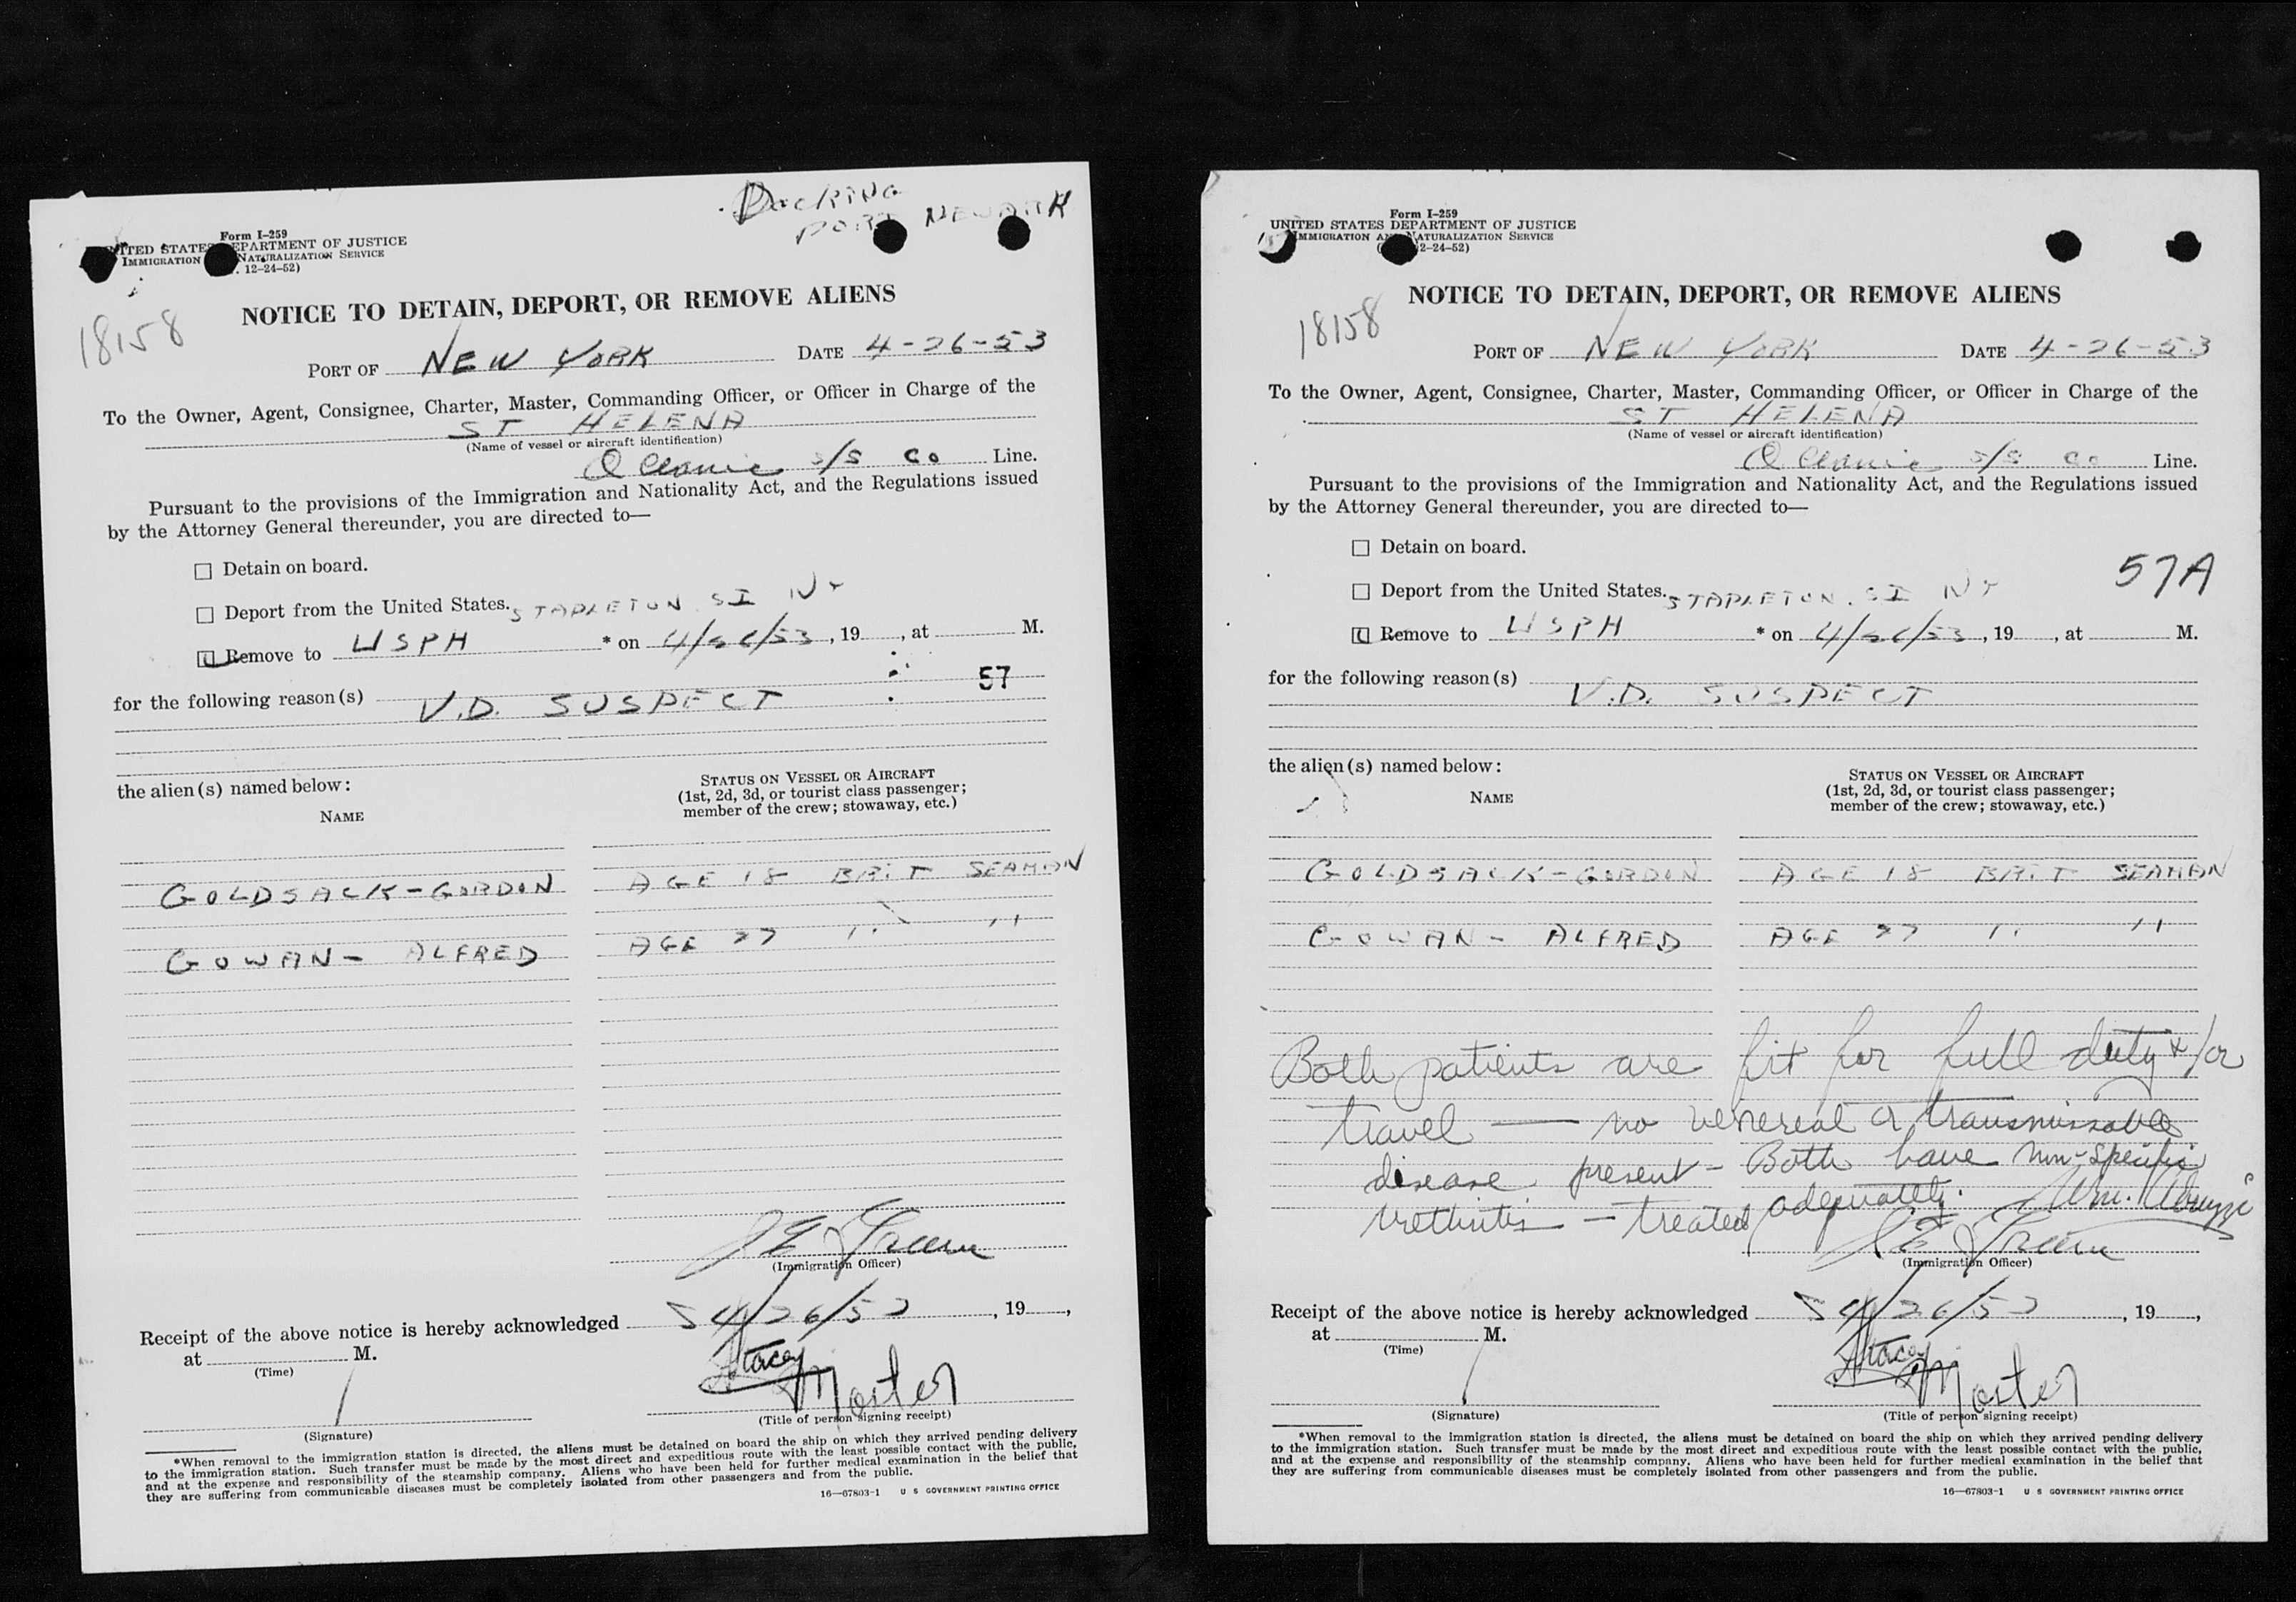 Docking
Port Newark
Form I-259
UNITED STATES DEPARTMENT OF JUSTICE
IMMIGRATION NATURALIZATION SERVICE
12-24-52)
18158
NOTICE TO DETAIN, DEPORT, OR REMOVE ALIENS
PORT OF NEW YORK DATE 4-26-53
To the Owner, Agent, Consignee, Charter, Master, Commanding Officer, or Officer in Charge of the
ST HELENA
(Name of vessel or aircraft identification)
Oceanic S/S Co Line.
Pursuant to the provisions of the Immigration and Nationality Act, and the Regulations issued
by the Attorney General thereunder, you are directed to—
☐ Detain on board.
☐ Deport from the United States. STAPLETON SI NY
Remove to USPH * on 4/26/53, 19, at M.
57
for the following reason(s) V.D. SUSPECT
the alien(s) named below:
STATUS ON VESSEL OR AIRCRAFT
(1st, 2d, 3d, or tourist class passenger;
member of the crew; stowaway, etc.)
NAME
GOLDSACK-GORDON AGE 18 BRIT SEAMAN
GOWAN- ALFRED AGE 27 " "
J E Greene
(Immigration Officer)
Receipt of the above notice is hereby acknowledged 4/26/53, 19,
at M.
(Time)
Stacey
Master
(Title of person signing receipt)
(Signature)
*When removal to the immigration station is directed, the aliens must be detained on board the ship on which they arrived pending delivery
to the immigration station. Such transfer must be made by the most direct and expeditious route with the least possible contact with the public,
and at the expense and responsibility of the steamship company. Aliens who have been held for further medical examination in the belief that
they are suffering from communicable diseases must be completely isolated from other passengers and from the public.
16—67803-1 U S GOVERNMENT PRINTING OFFICE
Form I-259
UNITED STATES DEPARTMENT OF JUSTICE
IMMIGRATION AND NATURALIZATION SERVICE
12-24-52)
18158
NOTICE TO DETAIN, DEPORT, OR REMOVE ALIENS
PORT OF NEW YORK DATE 4-26-53
To the Owner, Agent, Consignee, Charter, Master, Commanding Officer, or Officer in Charge of the
ST HELENA
(Name of vessel or aircraft identification)
Oceanic S/S Co Line.
Pursuant to the provisions of the Immigration and Nationality Act, and the Regulations issued
by the Attorney General thereunder, you are directed to—
☐ Detain on board.
57A
☐ Deport from the United States. STAPLETON. SI NY
Remove to USPH * on 4/26/53, 19, at M.
for the following reason(s)
V.D. SUSPECT
the alien(s) named below:
STATUS ON VESSEL OR AIRCRAFT
(1st, 2d, 3d, or tourist class passenger;
member of the crew; stowaway, etc.)
NAME
GOLDSACK-GORDON AGE 18 BRIT SEAMAN
GOWAN- ALFRED AGE 27 " "
Both patients are fit for full duty &/or
travel — no venereal or transmissable
disease present - Both have non-specific
urethritis — treated adequately. Wm. Abruzzi
J E Greene
(Immigration Officer)
Receipt of the above notice is hereby acknowledged 4/26/53, 19,
at M.
(Time)
Stacey
Master
(Signature)
(Title of person signing receipt)
*When removal to the immigration station is directed, the aliens must be detained on board the ship on which they arrived pending delivery
to the immigration station. Such transfer must be made by the most direct and expeditious route with the least possible contact with the public,
and at the expense and responsibility of the steamship company. Aliens who have been held for further medical examination in the belief that
they are suffering from communicable diseases must be completely isolated from other passengers and from the public.
16—67803-1 U S GOVERNMENT PRINTING OFFICE